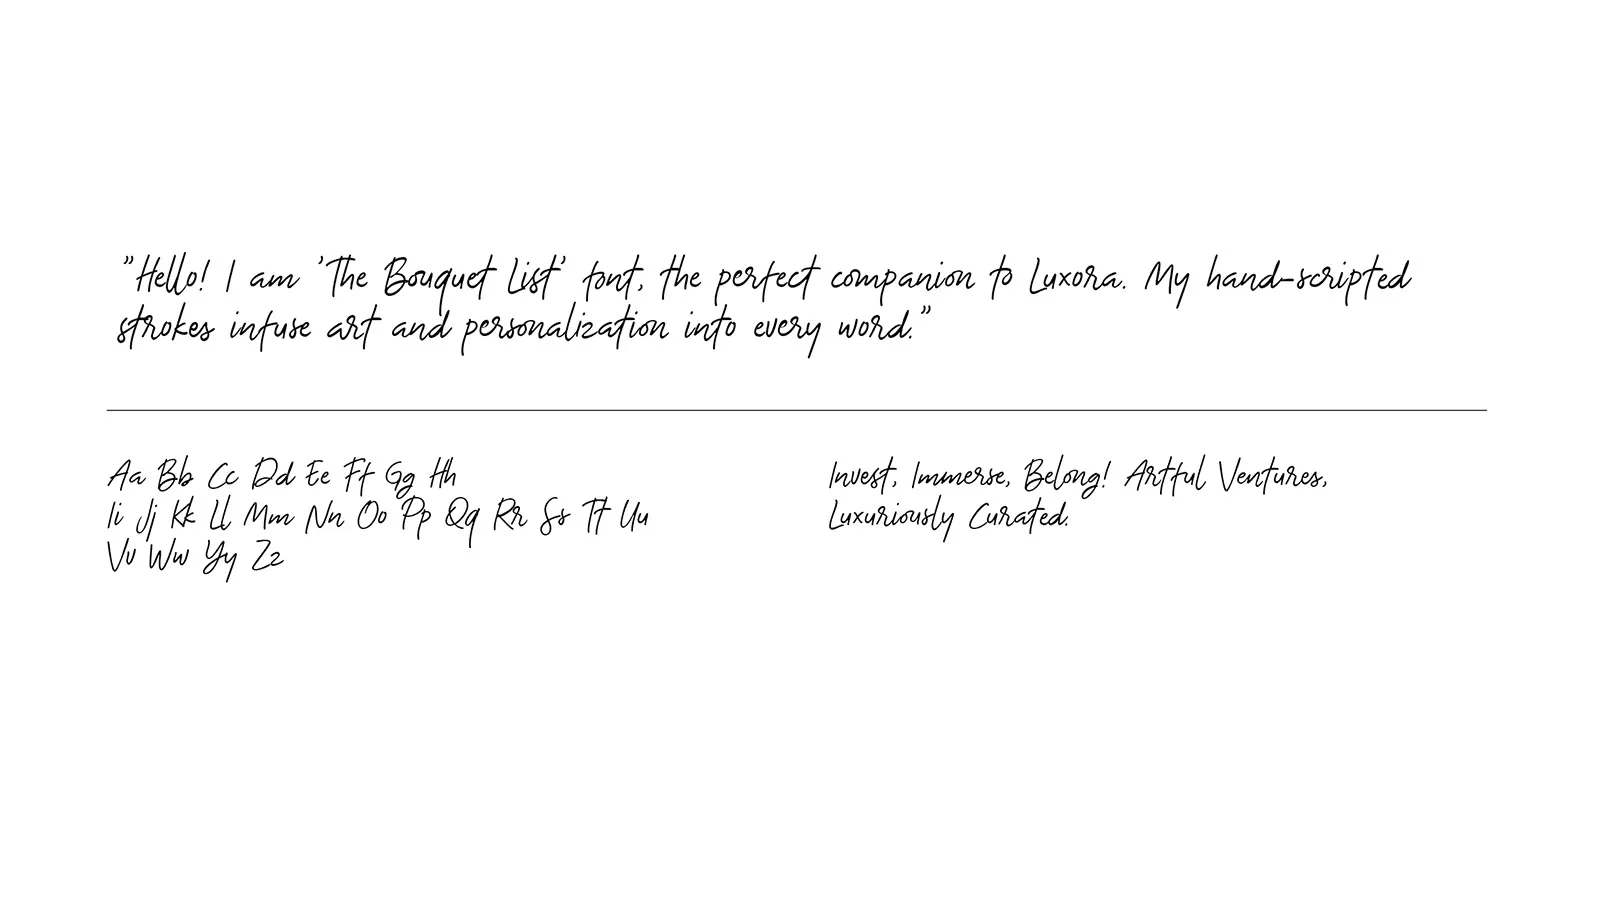 "Hello! I am 'The Bouquet List' font, the perfect companion to Luxora. My hand-scripted
strokes infuse art and personalization into every word."
Aa Bb Cc Dd Ee Ff Gg Hh
Ii Jj Kk Ll Mm Nn Oo Pp Qq Rr Ss Tt Uu
Vv Ww Yy Zz
Invest, Immerse, Belong! Artful Ventures,
Luxuriously Curated.